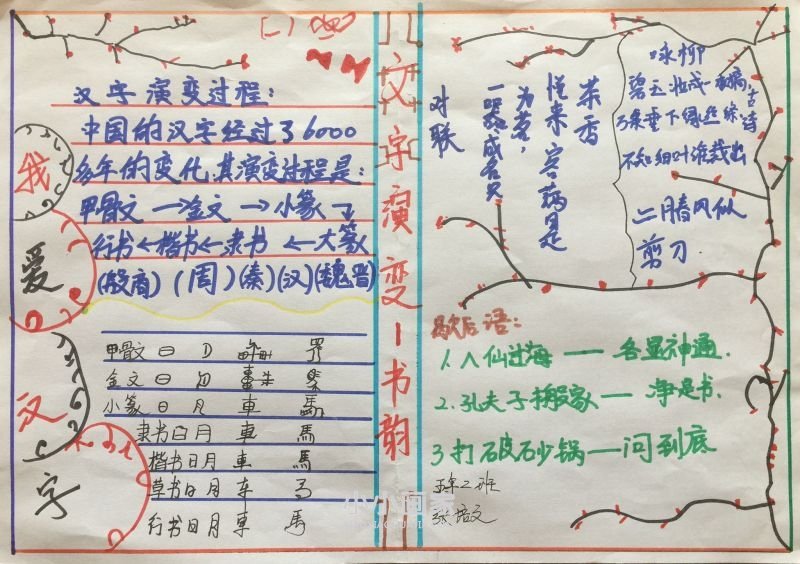 我
爱
汉
字
汉字演变过程:
中国的汉字经过了6000
多年的变化,其演变过程是:
甲骨文→金文→小篆
行书←楷书←隶书←大篆
(殷商)(周)(秦)(汉)(魏晋)
甲骨文
金文
小篆 日月車馬
隶书日月車馬
楷书日月車馬
草书日月车马
行书日月車馬
文字演变-书韵
对联
一器成名只
为茗,
悦来客满是
茶香
咏柳
古诗
碧玉妆成一树高,
万条垂下绿丝绦,
不知细叶谁裁出
二月春风似
剪刀
歇后语:
1.八仙过海——各显神通.
2.孔夫子搬家——净是书.
3打破砂锅——问到底
五年2班